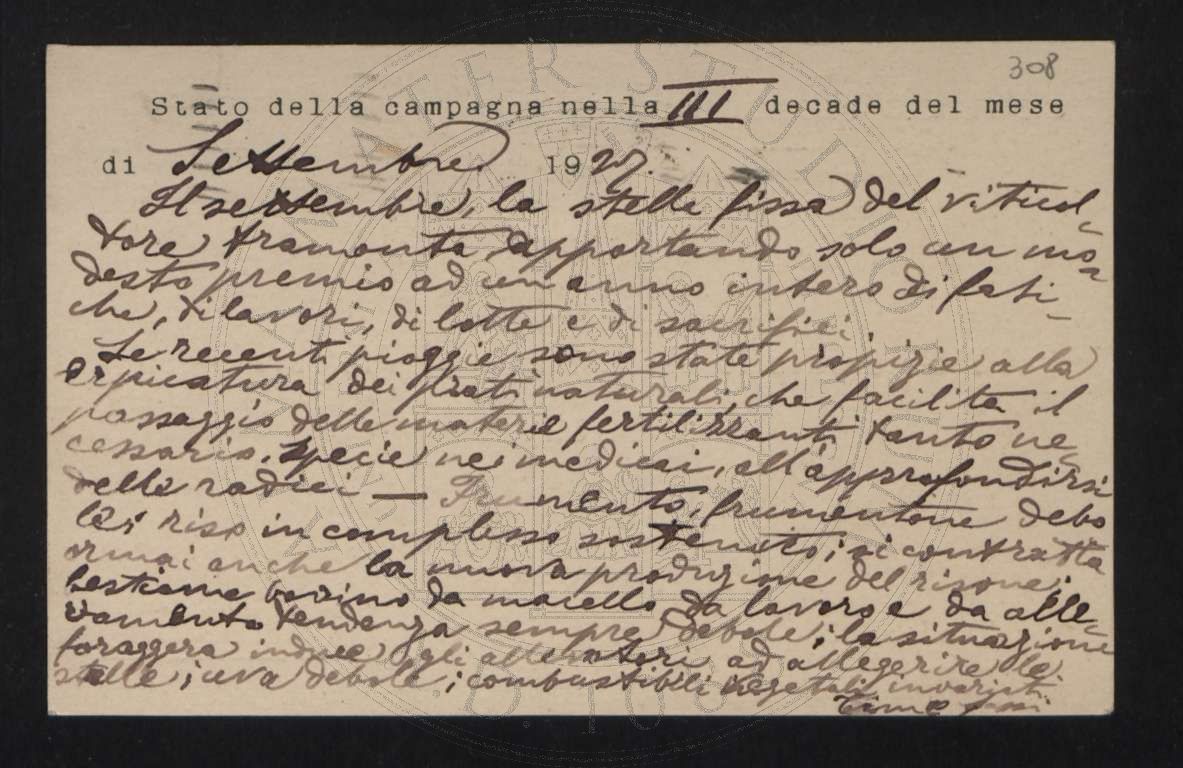 308
Stato della campagna nella III decade del mese
di Settembre 1927.
Il settembre, la stella fissa del viticol-
tore tramonta apportando solo un mo-
desto premio ad un anno intero di fati-
che, di lavori, di lotte e di sacrifici.
Le recenti pioggie sono state propizie alla
erpicatura dei prati naturali, che facilita il
passaggio delle materie fertilizzanti tanto ne-
cessario, specie nei medicai, all'approfondirsi
delle radici — Frumento, frumentone debo
li; riso in complesso sostenuto; si contratta
ormai anche la nuova produzione del risone;
bestiame bovino da macello da lavoro e da alle-
vamento tendenza sempre debole; la situazione
foraggera induce gli allevatori ad allegerire le
stalle; uva debole; combustibili vegetali invariati